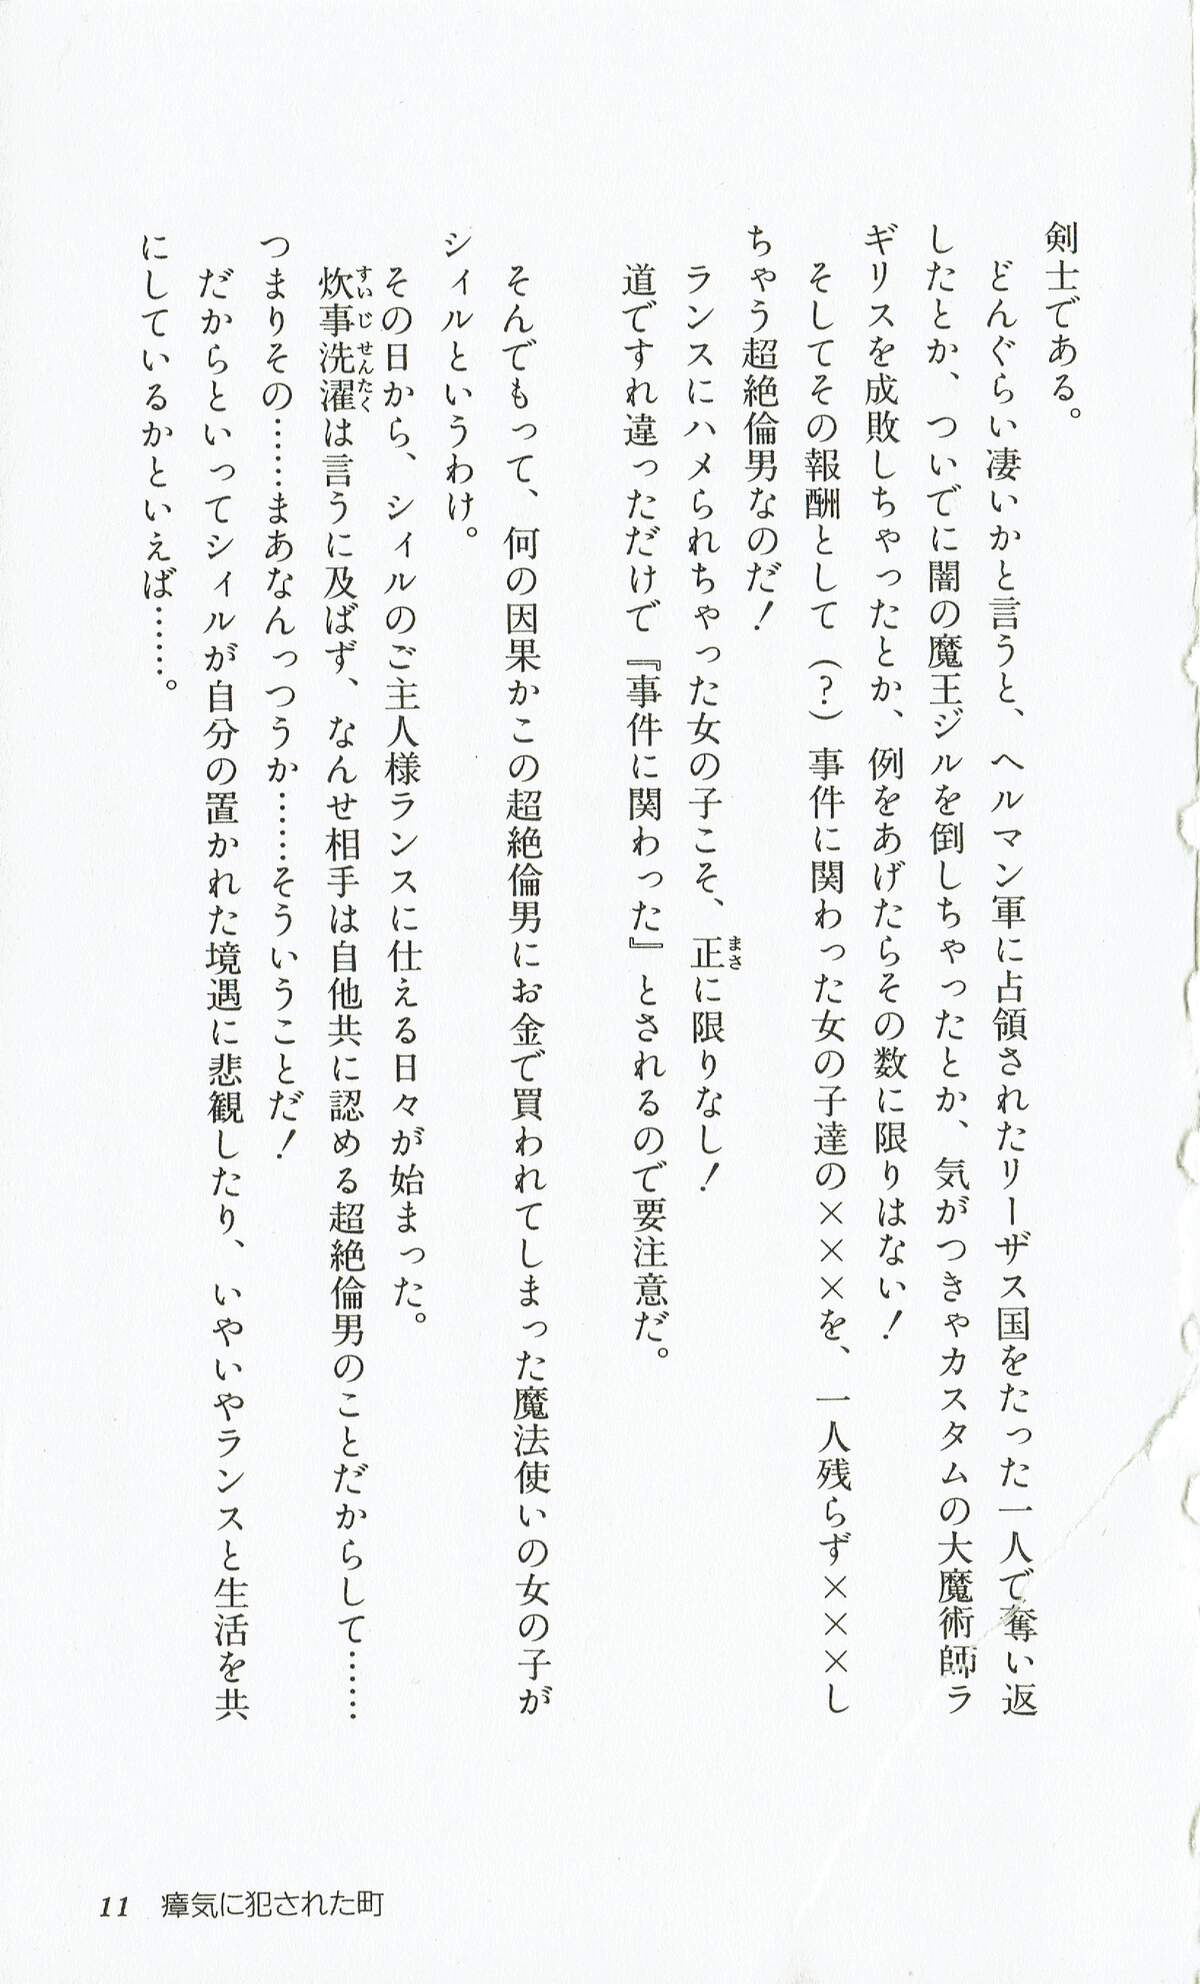 剣士である。
どんぐらい凄いかと言うと、ヘルマン軍に占領されたリーザス国をたった一人で奪い返
したとか、ついでに闇の魔王ジルを倒しちゃったとか、気がつきゃカスタムの大魔術師ラ
ギリスを成敗しちゃったとか、例をあげたらその数に限りはない！
そしてその報酬として（？）事件に関わった女の子達の×××を、一人残らず×××し
ちゃう超絶倫男なのだ！
ランスにハメられちゃった女の子こそ、正に限りなし！
まさ
道ですれ違っただけで『事件に関わった』とされるので要注意だ。
そんでもって、何の因果かこの超絶倫男にお金で買われてしまった魔法使いの女の子が
シィルというわけ。
その日から、シィルのご主人様ランスに仕える日々が始まった。
炊事洗濯は言うに及ばず、なんせ相手は自他共に認める超絶倫男のことだからして……
すいじせんたく
つまりその……まあなんっつうか……そういうことだ！
だからといってシィルが自分の置かれた境遇に悲観したり、いやいやランスと生活を共
にしているかといえば……。
11 瘴気に犯された町